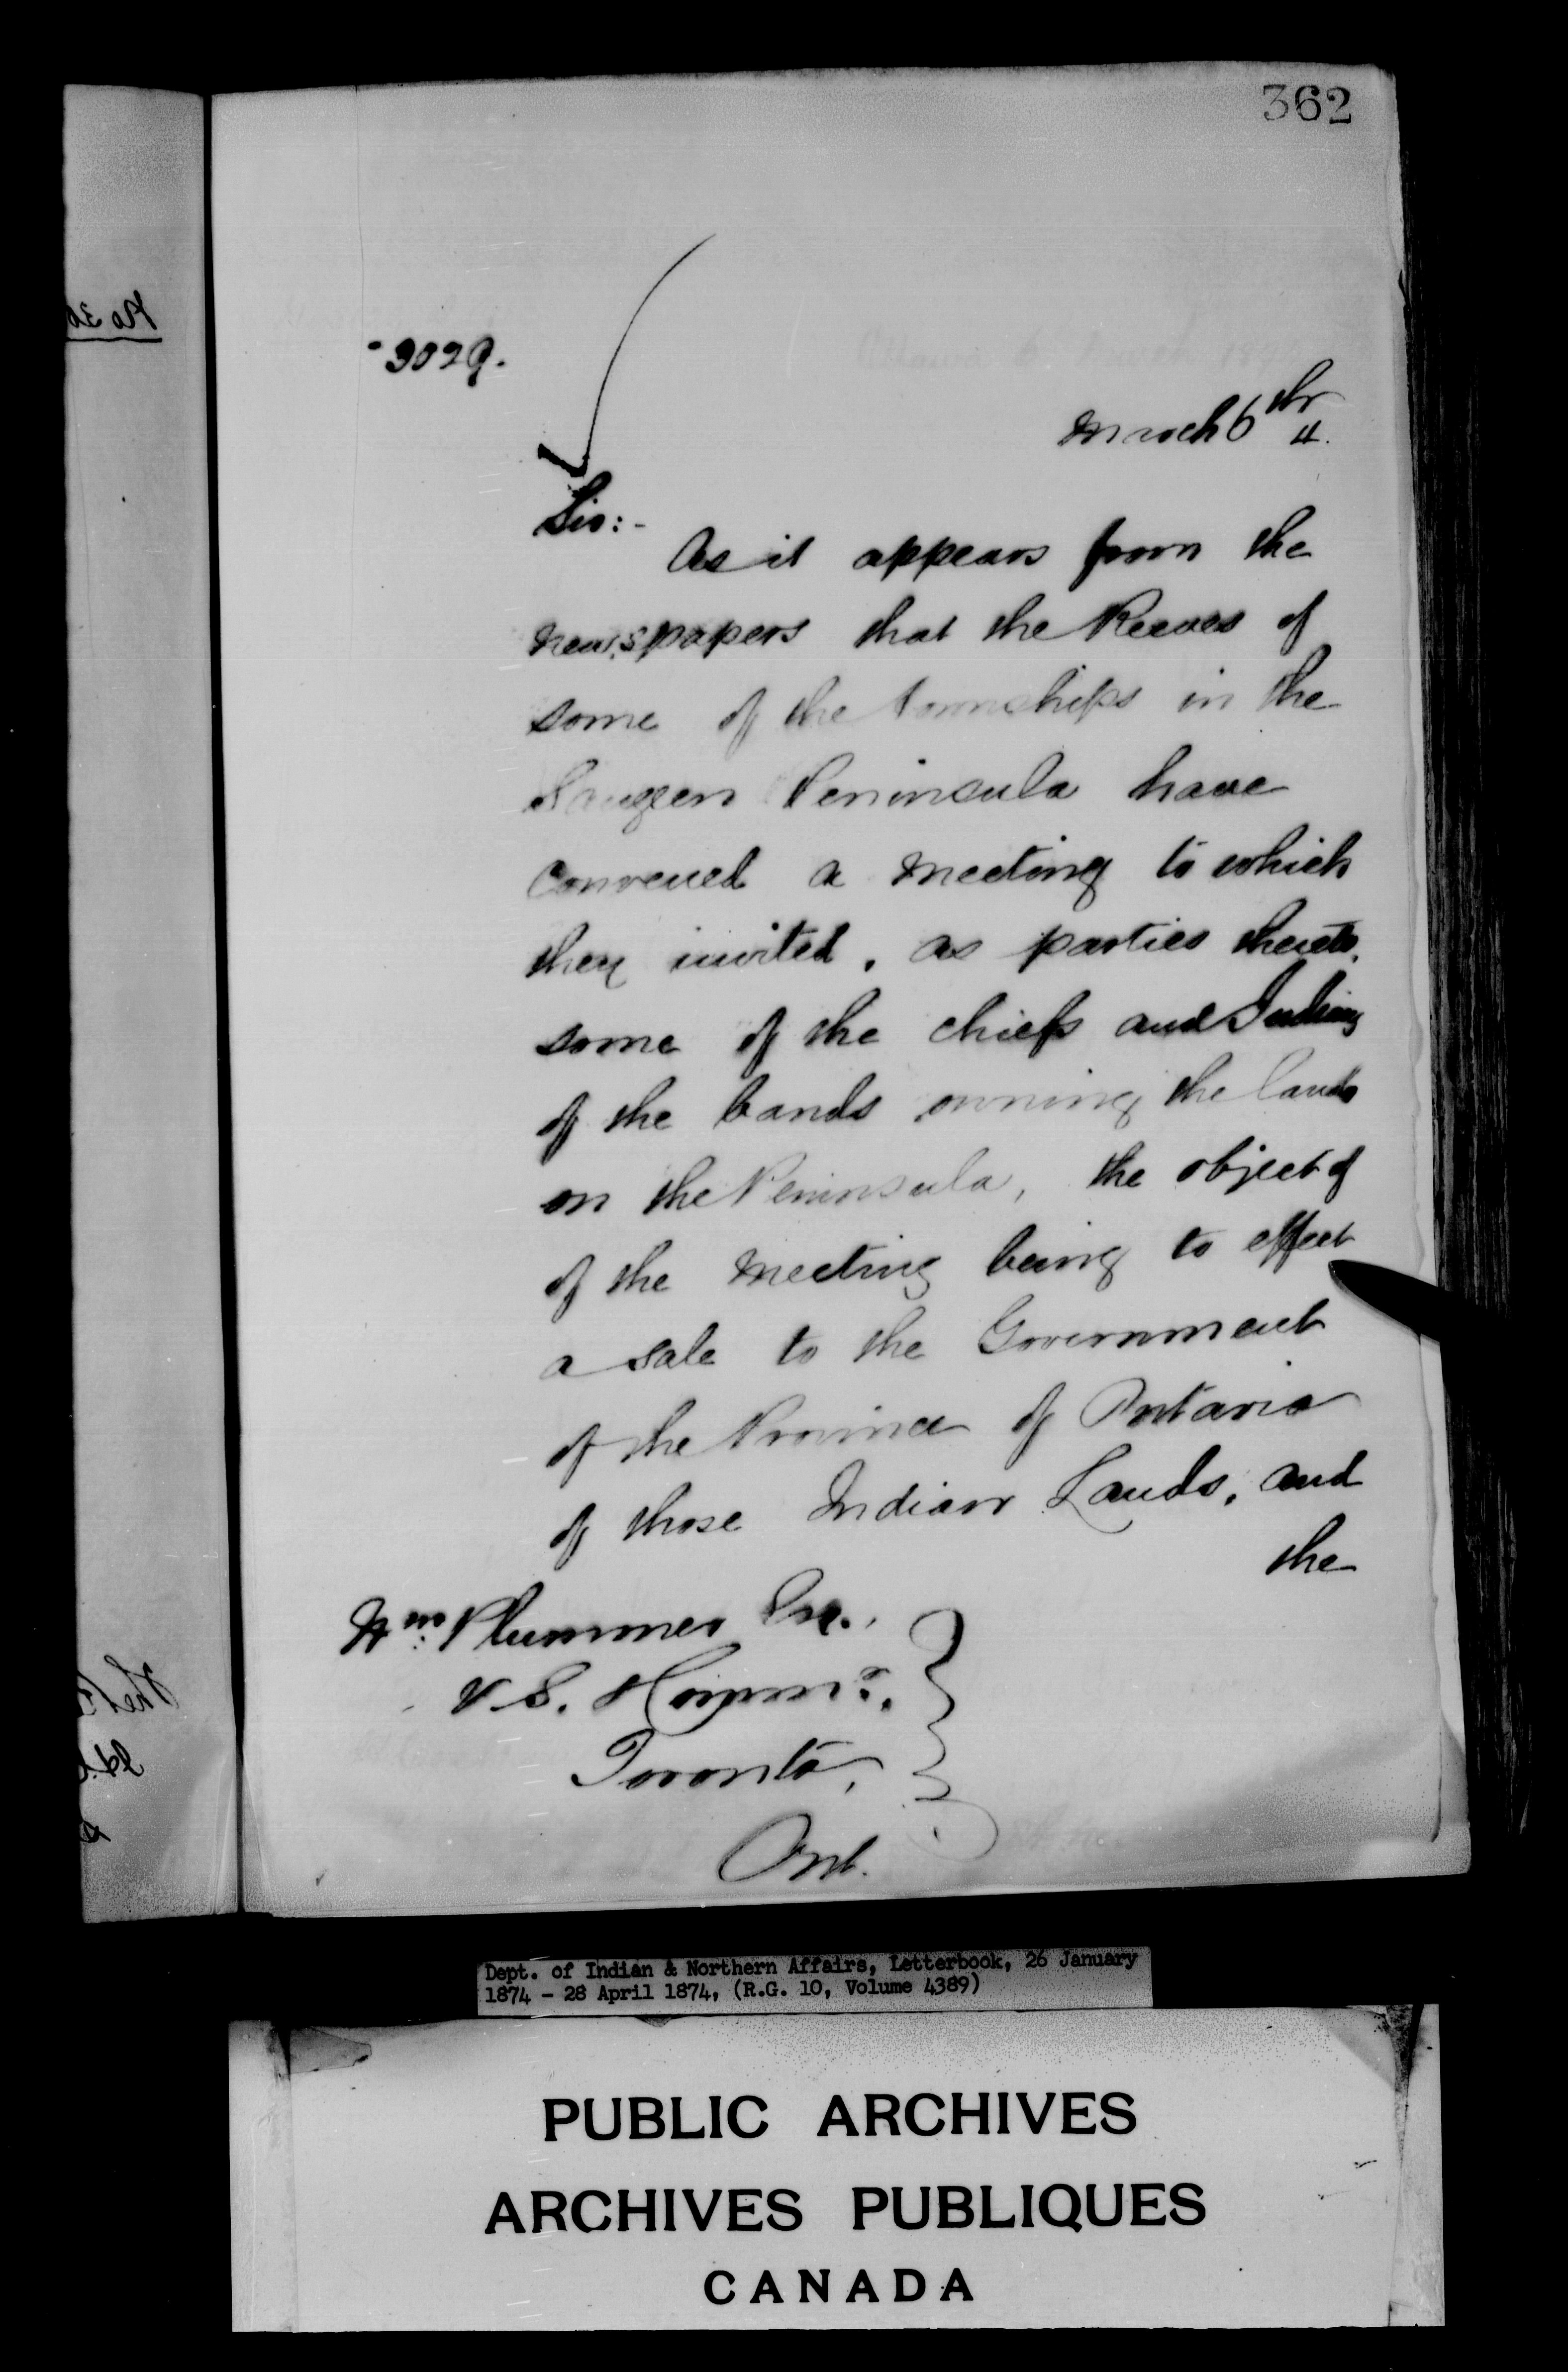 362
3029.
March 6th 4.
Sir:-
As it appears from the
newspapers that the Reeves of
some of the townships in the
Saugeen Peninsula have
convened a meeting to which
they invited, as parties thereto,
some of the chiefs and Indians
of the bands owning the lands
on the Peninsula, the object of
of the meeting being to effect
a sale to the Government
of the Province of Ontario
of those Indian Lands, and
the
Wm. Plummer Esq.,
V. S. Commr.,
Toronto,
Ont.
Dept. of Indian & Northern Affairs, Letterbook, 26 January
1874 - 28 April 1874, (R.G. 10, Volume 4389)
PUBLIC ARCHIVES
ARCHIVES PUBLIQUES
CANADA